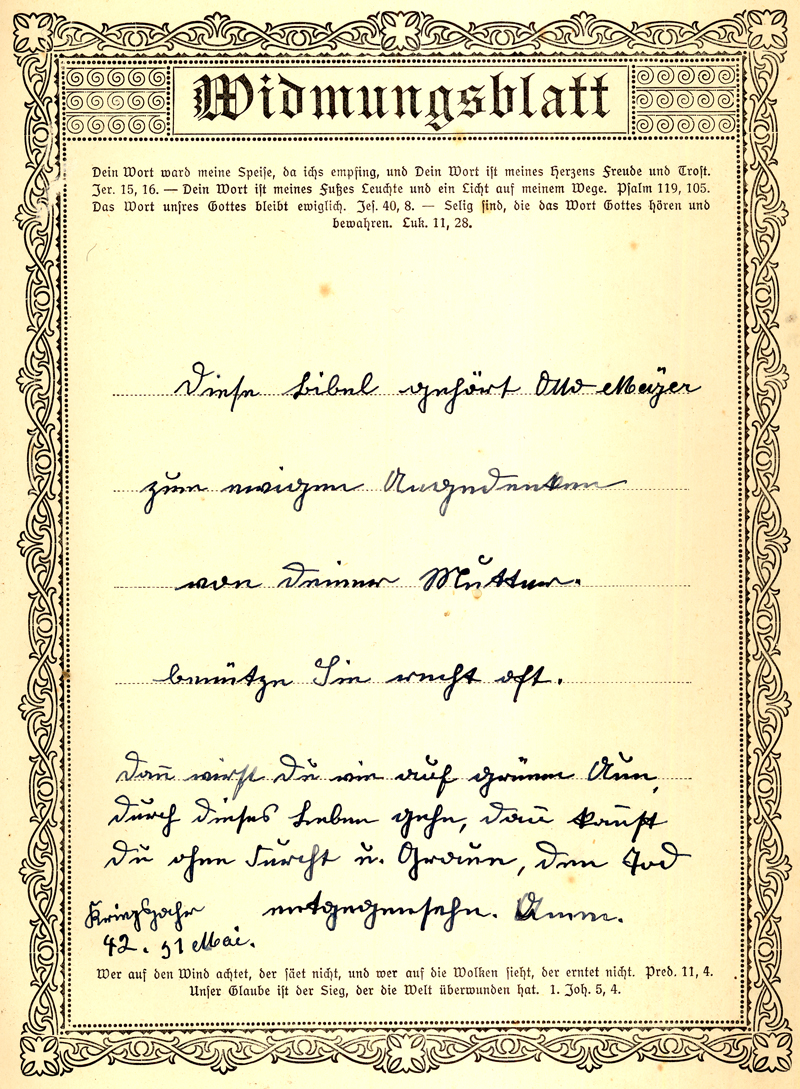 Widmungsblatt
Dein Wort ward meine Speise, da ichs empfing, und Dein Wort ist meines Herzens Freude und Trost.
Jer. 15, 16. — Dein Wort ist meines Fußes Leuchte und ein Licht auf meinem Wege. Psalm 119, 105.
Das Wort unsres Gottes bleibt ewiglich. Jes. 40, 8. — Selig sind, die das Wort Gottes hören und
bewahren. Luk. 11, 28.
Diese Bibel gehört Otto Meÿer
zum ewigen Angedenken
von deiner Mutter.
benütze Sie recht oft.
Dan̄ wirst Du wie auf grünen Aun,
durch dieses Leben gehn, dan̄ kan̄st
Du ohne Furcht u. Graun, dem Tod
entgegensehn. Amen.
Kriegsjahr
42. 31 Mai.
Wer auf den Wind achtet, der säet nicht, und wer auf die Wolken sieht, der erntet nicht. Pred. 11, 4.
Unser Glaube ist der Sieg, der die Welt überwunden hat. 1. Joh. 5, 4.